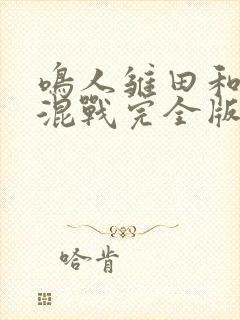 鳴人雏田和
混戰完全版
哈肯